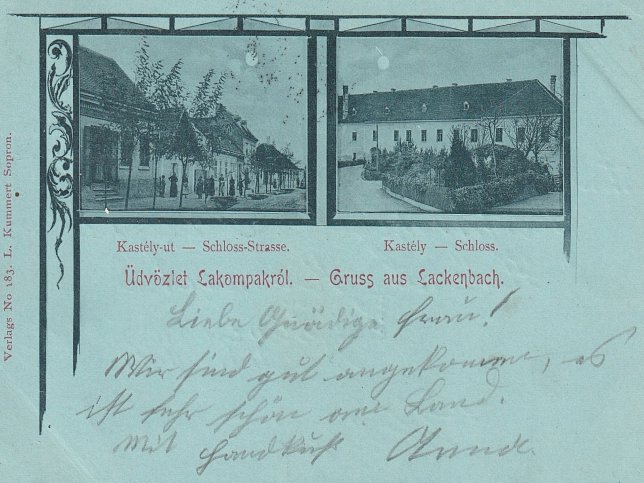 Verlags No 183. L. Kummert Sopron.
Kastély-ut — Schloss-Strasse.
Kastély — Schloss.
Üdvözlet Lakompakról. — Gruss aus Lackenbach.
Liebe Gnädige Frau!
Wir sind gut angekommen, es
ist sehr schön am Land.
Mit Handkuß